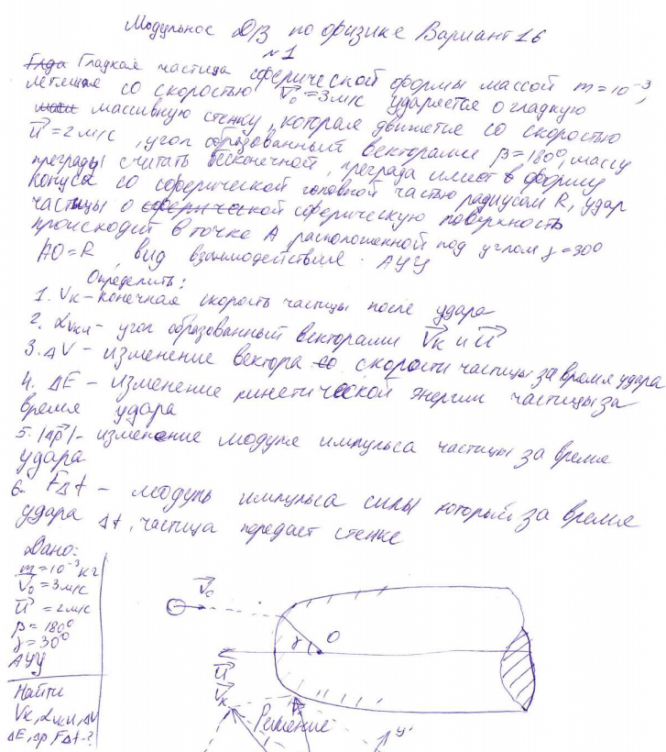 Модульное Д/З по физике Вариант 16
№1
Гладкая частица сферической формы массой m=10⁻³,
летящая со скоростью V₀=3м/с ударяется о гладкую
массивную стенку, которая движется со скоростью
U=2м/с, угол образованный векторами β=180°, массу
преграды считать бесконечной, преграда имеет форму
конуса со сферической головной частью радиусом R, удар
частицы о сферическую поверхность
происходит в точке А расположенной под углом γ=30°
AO=R, вид взаимодействия: АУУ
Определить:
1. Vк - конечная скорость частицы после удара
2. αVкu - угол образованный векторами Vк и U
3. ΔV - изменение вектора скорости частицы за время удара
4. ΔE - изменение кинетической энергии частицы за
время удара
5. |Δp| - изменение модуля импульса частицы за время
удара
6. FΔt - модуль импульса силы который за время
удара Δt, частица передаст стенке
Дано:
m=10⁻³кг
V₀=3м/с
U=2м/с
β=180°
γ=30°
АУУ
Найти
Vк, αVкu, ΔV
ΔE, Δp, FΔt-?
V₀
γ
O
U
Vк
Решение
y'